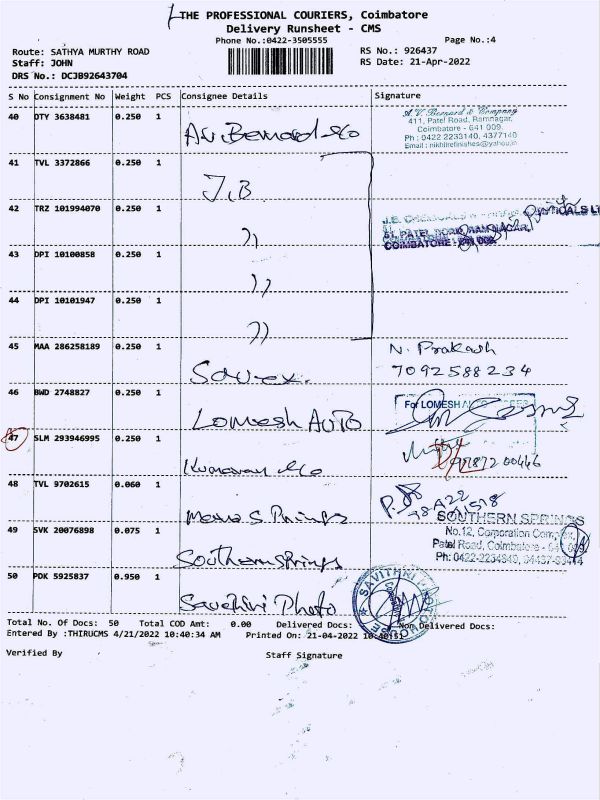 THE PROFESSIONAL COURIERS, Coimbatore
Delivery Runsheet - CMS
Phone No.:0422-3505555
Page No.:4
Route: SATHYA MURTHY ROAD
RS No.: 926437
Staff: JOHN
RS Date: 21-Apr-2022
DRS No.: DCJB92643704
S No Consignment No Weight PCS Consignee Details Signature
40 DTY 3638481 0.250 1 A.V. Bernard &Co
A.V. Bernard & Company
411, Patel Road, Ramnagar,
Coimbatore - 641 009.
Ph : 0422 2233140, 4377140
Email : nikhilrefinishes@yahoo.in
41 TVL 3372866 0.250 1 J.B
42 TRZ 101994070 0.250 1 ))
J.B. CHEMICALS
51, PATEL ROAD, RAMNAGAR,
COIMBATORE - 641 009.
43 DPI 10100858 0.250 1 ))
44 DPI 10101947 0.250 1 ))
45 MAA 286258189 0.250 1
N. Prakash
7092588234
46 BWD 2748827 0.250 1 Lomesh AUTO
For LOMESH
47 SLM 293946995 0.250 1 Kumaran &Co
48 TVL 9702615 0.060 1
49 SVK 20076898 0.075 1 Southern Springs
SOUTHERN SPRINGS
No.12, Corporation Complex,
Patel Road, Coimbatore - 641 009.
Ph: 0422-2234949,
50 PDK 5925837 0.950 1 Savithiri Photo
SAVITHRI PHOTO HOUSE
Total No. Of Docs: 50 Total COD Amt: 0.00 Delivered Docs: Non Delivered Docs:
Entered By :THIRUCMS 4/21/2022 10:40:34 AM Printed On: 21-04-2022 10:40:51
Verified By Staff Signature